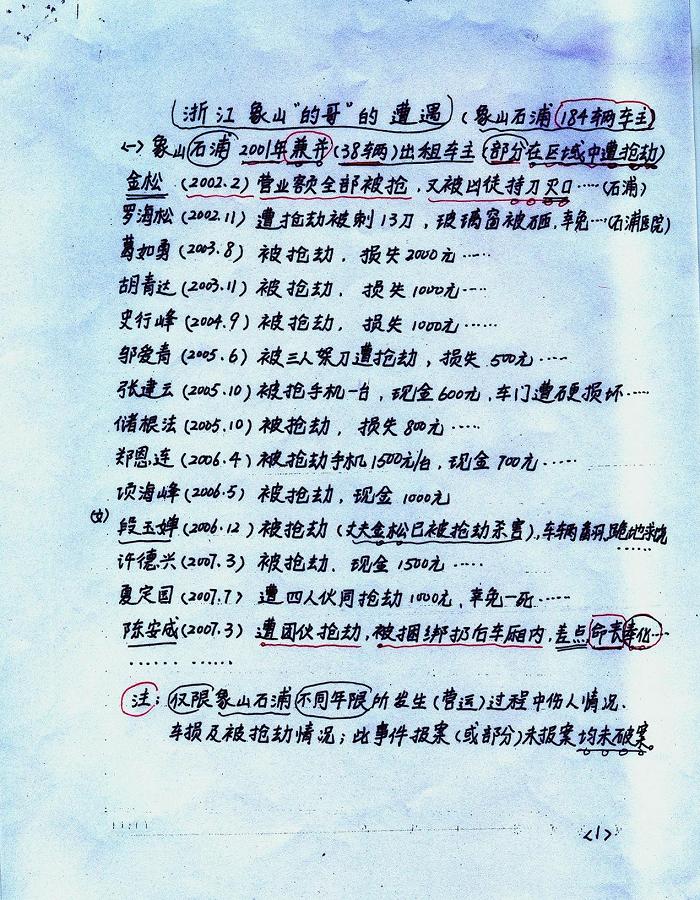 浙江象山"的哥"的遭遇 (象山石浦184辆车主)
<一> 象山石浦2001年兼并(38辆)出租车主(部分在区域中遭抢劫)
金松 (2002.2) 营业客全部被抢,又被凶徒持刀灭口……(石浦)
罗海松 (2002.11) 遭抢劫被刺13刀,玻璃窗被砸,幸免…(石浦医院)
葛如勇 (2003.8) 被抢劫,损失2000元……
胡青达 (2003.11) 被抢劫,损失1000元……
史行峰 (2004.9) 被抢劫,损失1000元……
邬爱青 (2005.6) 被三人架刀遭抢劫,损失500元……
张建云 (2005.10) 被抢手机一台,现金600元,车门遭硬损坏……
储根法 (2005.10) 被抢劫,损失800元……
郑恩连 (2006.4) 被抢劫手机1500元/台,现金700元……
项海峰 (2006.5) 被抢劫,现金1000元
(女) 段玉婵 (2006.12) 被抢劫(丈夫金松已被抢劫杀害),车辆翻,跪地求饶
许德兴 (2007.3) 被抢劫、现金1500元……
夏定国 (2007.7) 遭四人伙同抢劫1000元,幸免一死……
陈安成 (2007.3) 遭团伙抢劫,被捆绑扔后车厢内,差点命丧奉化…
…… ……
注:仅限象山石浦不同年限所发生(营运)过程中伤人情况.
车损及被抢劫情况;此事件报案(或部分)未报案均未破案。
<1>